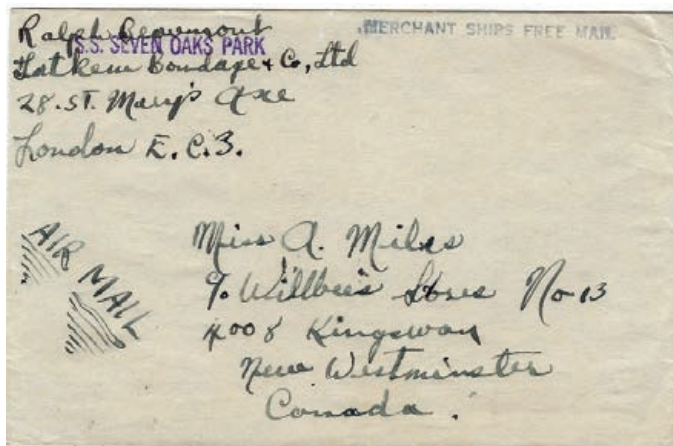 Ralph Beaumont
S.S. SEVEN OAKS PARK
MERCHANT SHIPS FREE MAIL
& Co, Ltd
28. ST. Mary's Axe
London E.C.3.
AIR MAIL
Miss A. Miles
c/o Willbee's Stores No 13
4008 Kingsway
New Westminster
Canada.